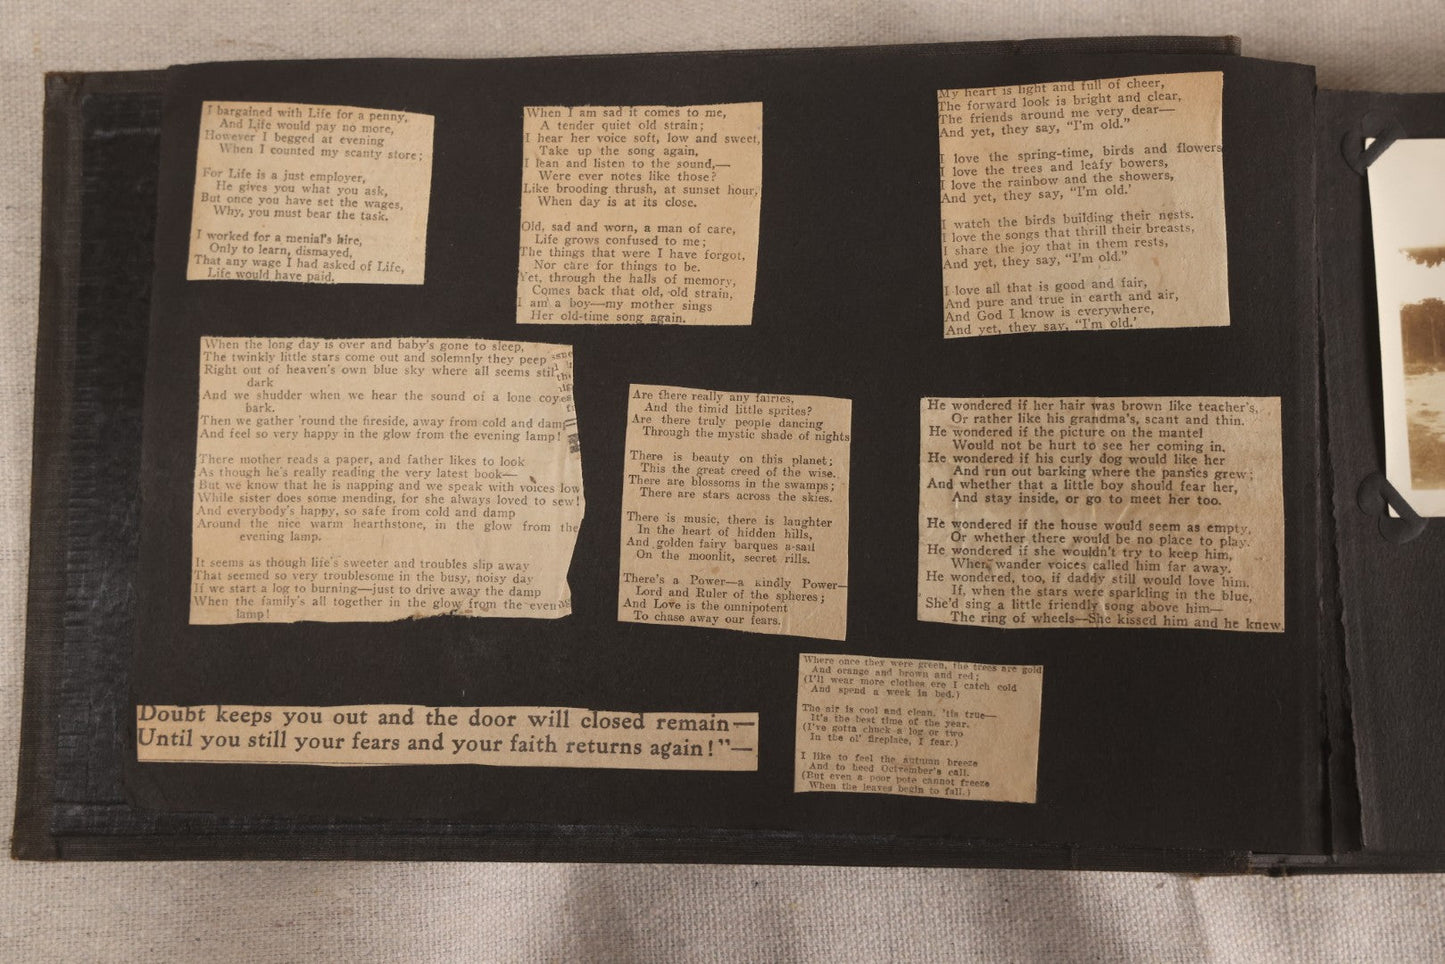 I bargained with Life for a penny,
And Life would pay no more,
However I begged at evening
When I counted my scanty store;
For Life is a just employer,
He gives you what you ask,
But once you have set the wages,
Why, you must bear the task.
I worked for a menial's hire,
Only to learn, dismayed,
That any wage I had asked of Life,
Life would have paid.
When I am sad it comes to me,
A tender quiet old strain;
I hear her voice soft, low and sweet,
Take up the song again,
I lean and listen to the sound,—
Were ever notes like those?
Like brooding thrush, at sunset hour,
When day is at its close.
Old, sad and worn, a man of care,
Life grows confused to me;
The things that were I have forgot,
Nor care for things to be.
Yet, through the halls of memory,
Comes back that old, old strain,
I am a boy—my mother sings
Her old-time song again.
My heart is light and full of cheer,
The forward look is bright and clear,
The friends around me very dear—
And yet, they say, "I'm old."
I love the spring-time, birds and flowers
I love the trees and leafy bowers,
I love the rainbow and the showers,
And yet, they say, "I'm old.'
I watch the birds building their nests.
I love the songs that thrill their breasts,
I share the joy that in them rests,
And yet, they say, "I'm old."
I love all that is good and fair,
And pure and true in earth and air,
And God I know is everywhere,
And yet, they say, "I'm old.'
When the long day is over and baby's gone to sleep,
The twinkly little stars come out and solemnly they peep
Right out of heaven's own blue sky where all seems still
dark
And we shudder when we hear the sound of a lone coy
bark.
Then we gather 'round the fireside, away from cold and damp
And feel so very happy in the glow from the evening lamp!
There mother reads a paper, and father likes to look
As though he's really reading the very latest book—
But we know that he is napping and we speak with voices low
While sister does some mending, for she always loved to sew!
And everybody's happy, so safe from cold and damp
Around the nice warm hearthstone, in the glow from the
evening lamp.
It seems as though life's sweeter and troubles slip away
That seemed so very troublesome in the busy, noisy day
If we start a log to burning—just to drive away the damp
When the family's all together in the glow from the even
lamp!
Are there really any fairies,
And the timid little sprites?
Are there truly people dancing
Through the mystic shade of nights
There is beauty on this planet;
This the great creed of the wise.
There are blossoms in the swamps;
There are stars across the skies.
There is music, there is laughter
In the heart of hidden hills,
And golden fairy barques a-sail
On the moonlit, secret rills.
There's a Power—a kindly Power—
Lord and Ruler of the spheres;
And Love is the omnipotent
To chase away our fears.
He wondered if her hair was brown like teacher's,
Or rather like his grandma's, scant and thin.
He wondered if the picture on the mantel
Would not be hurt to see her coming in.
He wondered if his curly dog would like her
And run out barking where the pansies grew;
And whether that a little boy should fear her,
And stay inside, or go to meet her too.
He wondered if the house would seem as empty,
Or whether there would be no place to play.
He wondered if she wouldn't try to keep him,
When wander voices called him far away.
He wondered, too, if daddy still would love him.
If, when the stars were sparkling in the blue,
She'd sing a little friendly song above him—
The ring of wheels—She kissed him and he knew.
Doubt keeps you out and the door will closed remain—
Until you still your fears and your faith returns again!"—
Where once they were green, the trees are gold
And orange and brown and red;
(I'll wear more clothes ere I catch cold
And spend a week in bed.)
The air is cool and clean, 'tis true—
It's the best time of the year.
(I've gotta chuck a log or two
In the ol' fireplace, I fear.)
I like to feel the autumn breeze
And to heed Octvember's call.
(But even a poor pote cannot freeze
When the leaves begin to fall.)